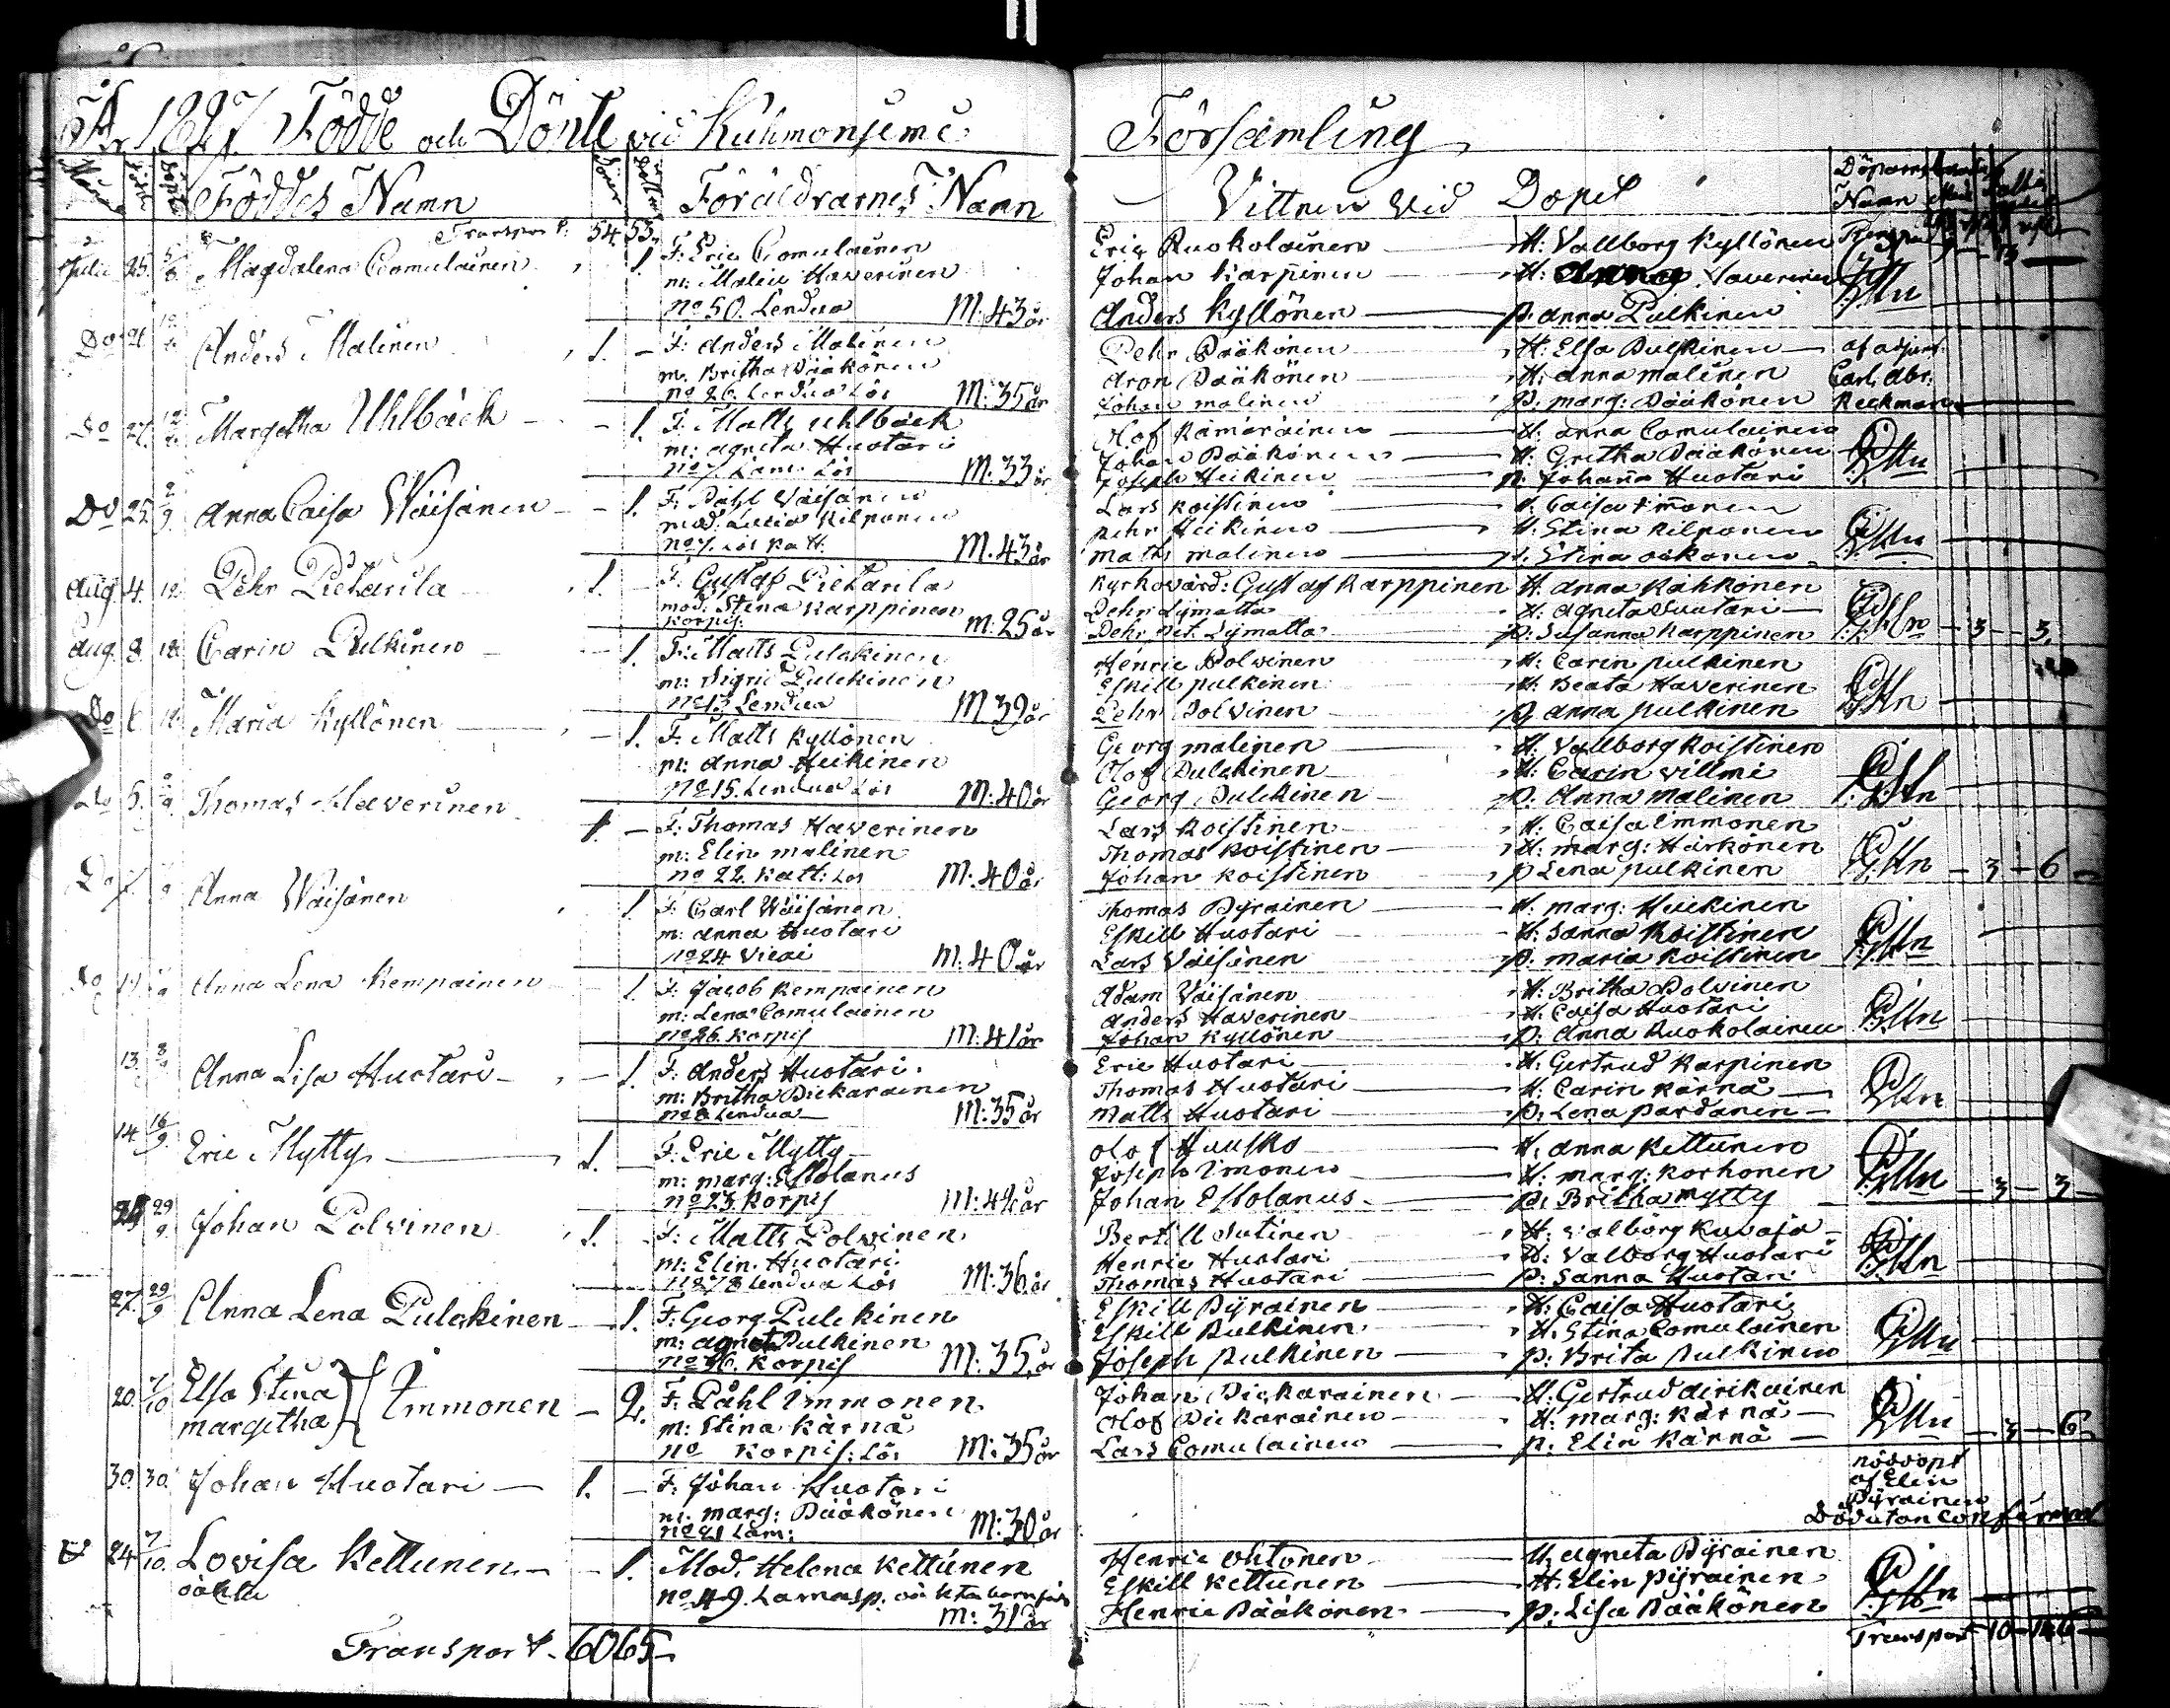 År 1827 Födde och Döpte vid Kuhmoniemi Församling
Födde Döpte Föddes Namn Söner Föräldrarnes Namn
Vittnen vid Dopet Namn
Transport: 54. 53.
Julii 25. 5/8 Magdalena Comulainen 1 F: Eric Comulainen
m: Malin Haverinen
No 50. Lendua M: 43 år
Eric Ruokolainen — H: Vallborg Kyllönen
Johan Karpinen — H: Haverinen
Anders Kyllönen — p. Anna Pulkinen
Do Anders Malinen 1. — F: Anders Malinen
m. Britha Pääkönen
No 26. Lendua Lös M: 35 år
Pehr Pääkönen — H: Elsa Pulkinen — af adjunt.
Aron Pääkönen — H: Anna Malinen Carl Abr:
Johan Malinen — p: marg: Pääkönen Keckman
Do 27. Margetha Uhlbäck — 1. F: Matts Uhlbäck
m: Agneta Huotari
No 7 Lam: Lös M: 33 år
Olof Kämäräinen — H: Anna Comulainen
Johan Pääkönen — H: Gretha Pääkönen
Joseph Heikinen — p: Johanna Huotari
Do 25. 2/9 Anna Caisa Wäisänen — 1. F: Påhl Wäisänen
mod: Lucia Kilponen
No 7. Lös Katt: M. 43 år
Lars Koistinen H: Caisa Immonen
Pehr Heikinen — H: Stina Kilponen
Matts Malinen —
Aug. 4. 12. Pehr Pietarila 1. — F: Gustaf Pietarila
mod: Stina Karppinen
Korpis: M: 25 år
Kyrkovärd: Gustaf Karppinen H: Anna Kähkönen
Pehr Lÿmatta H: Agneta Huotari —
Pehr Pet. Lÿmatta — p: Susanna Karppinen — 3 — 3.
Aug. 8. 12. Carin Pulkinen — 1. F: Matts Pulckinen
m: Sigrid Pulckinen
No 13 Lendua M 39 år
Henric Polvinen — H: Carin Pulkinen
Eskill Pulkinen — H: Beata Haverinen
Pehr Polvinen — p. Anna Pulkinen
Do 6. Maria Kyllönen — 1. F: Matts Kyllönen
m: Anna Heikinen
No 15. Lendua Lös M: 40 år
Georg Malinen — H: Vallborg Koistinen
Olof Pulckinen — H: Carin Villmi
Georg Pulckinen — p: Anna Malinen
Do 5. Thomas Haverinen 1. — F: Thomas Haverinen
m: Elin Malinen
No 22. Katt: Lös M: 40 år
Lars Koistinen — H: Caisa Immonen
Thomas Koistinen — H: marg: Härkönen
Johan Koistinen — p Lena Pulkinen — 3 — 6 —
Do Anna Wäisänen 1 F: Carl Wäisänen
m: Anna Huotari
No 24 Vieki M: 40 år
Thomas Pÿräinen — H: marg: Heickinen
Eskill Huotari — H: Sanna Koistinen
Lars Väisänen — p: Maria Koistinen
Do Anna Lena Kempainen — 1. F: Jacob Kempainen
m: Lena Comulainen
No 26. Korpis M: 41 år
Adam Väisänen — H: Britha Polvinen
Anders Haverinen — H: Caisa Huotari
Johan Kyllönen — p: Anna Ruokolainen
13. Anna Lisa Huotari — 1. F: Anders Huotari.
m: Britha Pickarainen
No 8 Lendua — M: 35 år
Eric Huotari — H: Gertrud Karpinen
Thomas Huotari — H: Carin Kärnä —
Matts Huotari — p: Lena Pardanen —
14. 16/9. Eric Mytty — 1. — F: Eric Mytty —
m: marg: Estolanus
No 23 Korpis M: 42 år
Olof Huusko — H: Anna Kettunen
Joseph Imonen — H: marg: Korhonen
Johan Estolanus — p: Britha Mytty — 3 — 3
29/9 Johan Polvinen 1. — F: Matts Polvinen
m: Elin Huotari
Lendua Lös M: 36 år
Bertill Autinen — H: Valborg Kuvaja —
Henric Huotari — H: Valborg Huotari
Thomas Huotari — p: Sanna Huotari
27. 29/9 Anna Lena Pulckinen — 1. F: Georg Pulckinen
m: Agneta Pulkinen
No 36. Korpis M: 35 år
Eskill Pÿräinen — H: Caisa Huotari
Eskill Pulkinen — H: Stina Comulainen
Joseph Pulkinen — p: Brita Pulkinen
20. 7/10 Elsa Stina
Margetha } Immonen — 2. F: Påhl Immonen
m: Stina Kärnä
No Korpis: Lös M: 35 år
Johan Pickarainen — H: Gertrud Airikainen
Olof Pickarainen — H: marg: Kärnä —
Lars Comulainen — p: Elin Kärnä — 3 — 6
30. 30. Johan Huotari — 1. — F: Johan Huotari
m. marg: Pääkönen
No 21 Lam: M: 30 år
nöddöpt
af Elin
Pÿräinen
Död utan confirmat
24 7/10. Lovisa Kettunen — 1. Mod. Helena Kettunen
oäkta No 49. Lamasp. oäkta barnföd
M: 31 år
Henric Ohtonen — H: Agneta Pÿräinen
Eskill Kettunen — H: Elin Pÿräinen
Henric Pääkönen — p: Lisa Pääkönen
Transport. 60 65 —
Transport 10 — 146 —